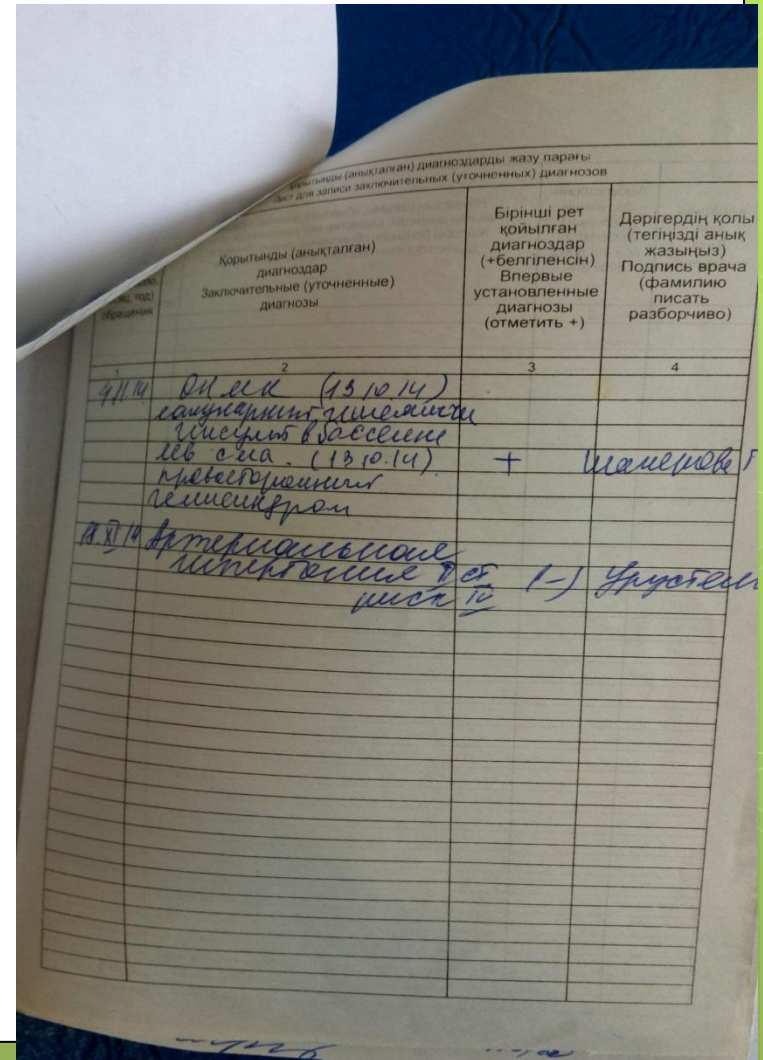 Қорытынды (анықталған) диагноздарды жазу парағы
Лист для записи заключительных (уточненных) диагнозов
год)
обращения
Қорытынды (анықталған)
диагноздар
Заключительные (уточненные)
диагнозы
Бірінші рет
қойылған
диагноздар
(+белгіленсін)
Впервые
установленные
диагнозы
(отметить +)
Дәрігердің қолы
(тегіңізді анық
жазыңыз)
Подпись врача
(фамилию
писать
разборчиво)
1 2 3 4
ОНМК (13.10.14)
лакунарный ишемичи
инсульт в бассейне
лев сма. (13.10.14) +
правосторонний
гемисиндром
Артериальная
гипертония II ст (-)
риск IV